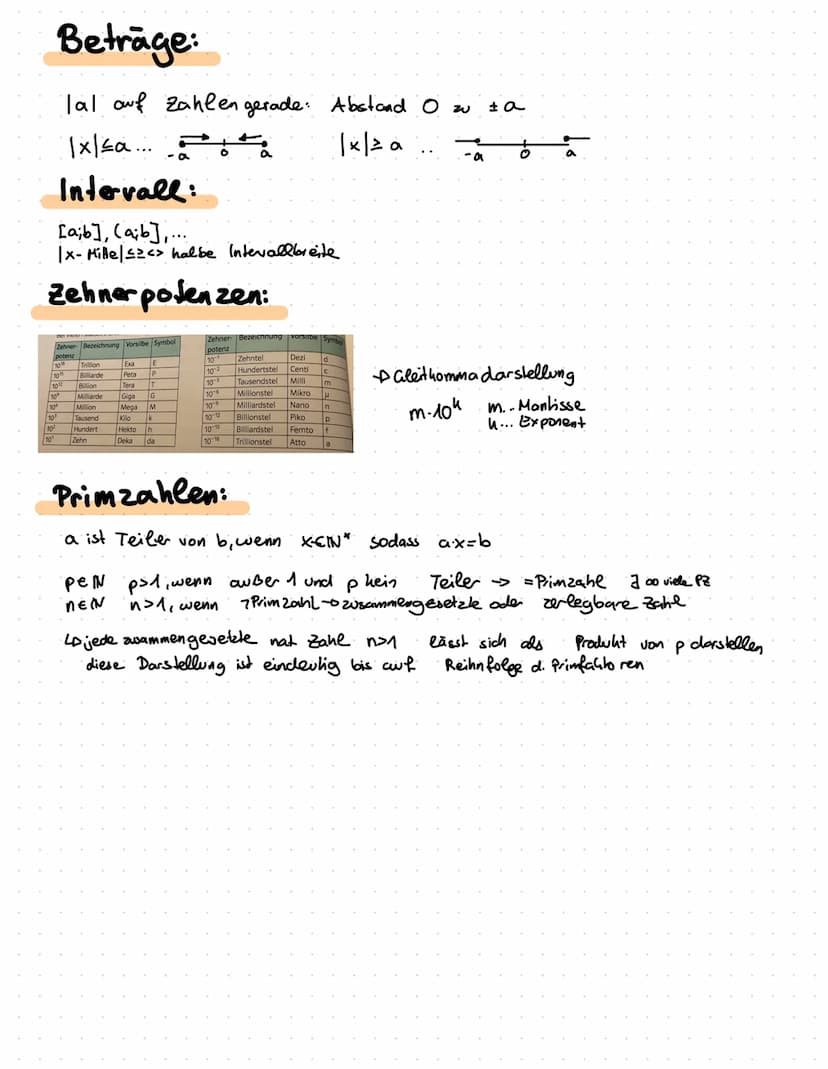 Beträge:
|a| auf Zahlengerade: Abstand 0 zu ±a
|x|≤a... -a 0 a |x|≥a .. -a 0 a
Intervall:
[a;b], (a;b],...
|x-Mitte|≤≥<> halbe Intervallbreite
Zehnerpotenzen:
Zehner-potenz Bezeichnung Vorsilbe Symbol
10¹⁸ Trillion Exa E
10¹⁵ Billiarde Peta P
10¹² Billion Tera T
10⁹ Milliarde Giga G
10⁶ Million Mega M
10³ Tausend Kilo k
10² Hundert Hekto h
10¹ Zehn Deka da
Zehner-potenz Bezeichnung Vorsilbe Symbol
10⁻¹ Zehntel Dezi d
10⁻² Hundertstel Centi c
10⁻³ Tausendstel Milli m
10⁻⁶ Millionstel Mikro μ
10⁻⁹ Milliardstel Nano n
10⁻¹² Billionstel Piko p
10⁻¹⁵ Billiardstel Femto f
10⁻¹⁸ Trillionstel Atto a
→ Gleitkommadarstellung
m·10ᵏ m.. Mantisse
k... Exponent
Primzahlen:
a ist Teiler von b, wenn x∈ℕ* sodass a·x=b
p∈ℕ p>1, wenn außer 1 und p kein Teiler → =Pimzahl ∃ ∞ viele PZ
n∈ℕ n>1, wenn ¬Primzahl → zusammengesetzte oder zerlegbare Zahl
↳ jede zusammengesetzte nat Zahl n>1 lässt sich als Produkt von p darstellen,
diese Darstellung ist eindeutig bis auf Reihnfolge d. Primfaktoren